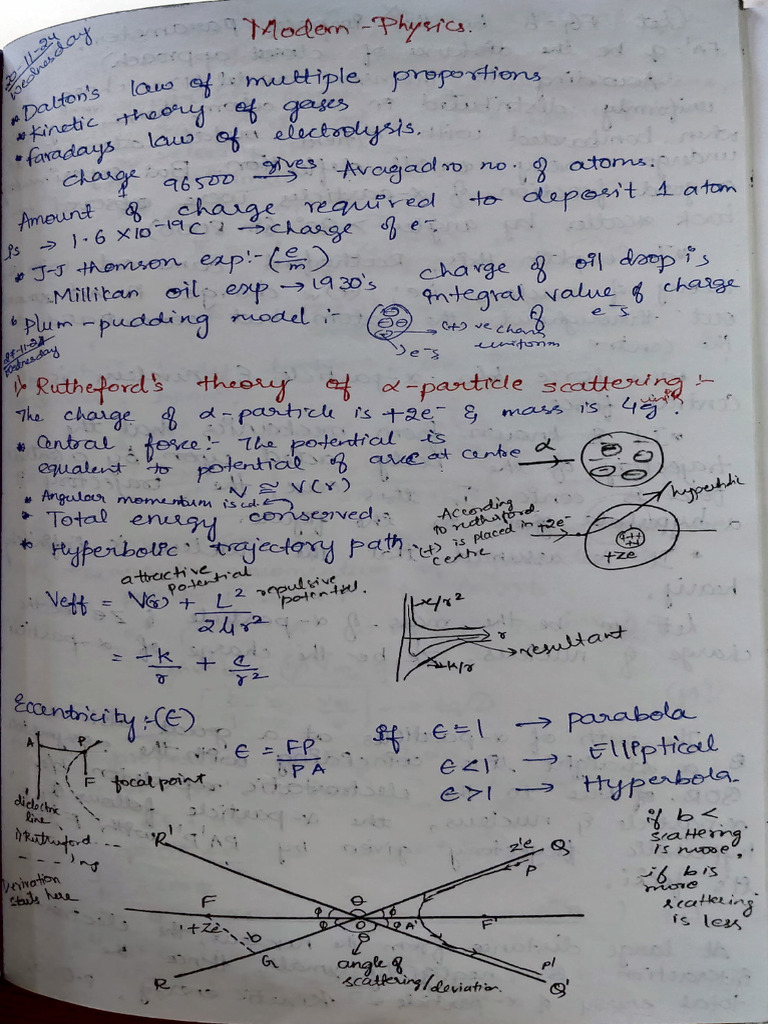 Modern-Physics.
20-11-24
Wednesday
* Dalton's law of multiple proportions
* Kinetic theory of gases
* faradays law of electrolysis.
charge 96500 gives → Avagadro no. of atoms.
Amount of charge required to deposit 1 atom
is → 1.6 × 10-19 C → charge of e-
* J-J thomson exp:- (e/m)
Millikan oil exp → 1930's
charge of oil drop is
integral value of charge
of e-s
* Plum-pudding model :-
→ (+) ve charge
uniform
→ e-s
27-11-24
Wednesday
1) Rutheford's theory of α-particle scattering :-
The charge of α-particle is +2e- & mass is 4g units
* Central force:- The potential is
equalent to potential of are at centre
V ≅ V(r)
α
* Angular momentum is cd.
* Total energy conserved.
* Hyperbolic trajectory path.
According
to rutherford
(+) is placed in
centre
+2e-
hyperbolic
+ze
attractive
potential
repulsive
potential.
Veff = V(r) + L²/2μr²
= -k/r + c/r²
x/r²
r
resultant
-k/r
Eccentricity :- (ϵ)
ϵ = FP/PA
If ϵ = 1 → parabola
ϵ < 1 → Elliptical
ϵ > 1 → Hyperbola.
A P
F focal point
dielectric
line
1) Rutherford ...
- - - - ing
Derivation
starts here
if b <
scattering
is more,
if b is
more
scattering
is less
R'
z'e Q
P
F θ
φ φ
φ φ A' F'
+Ze
b
O
θ
G
R
angle of
scattering/deviation.
P'
Q'